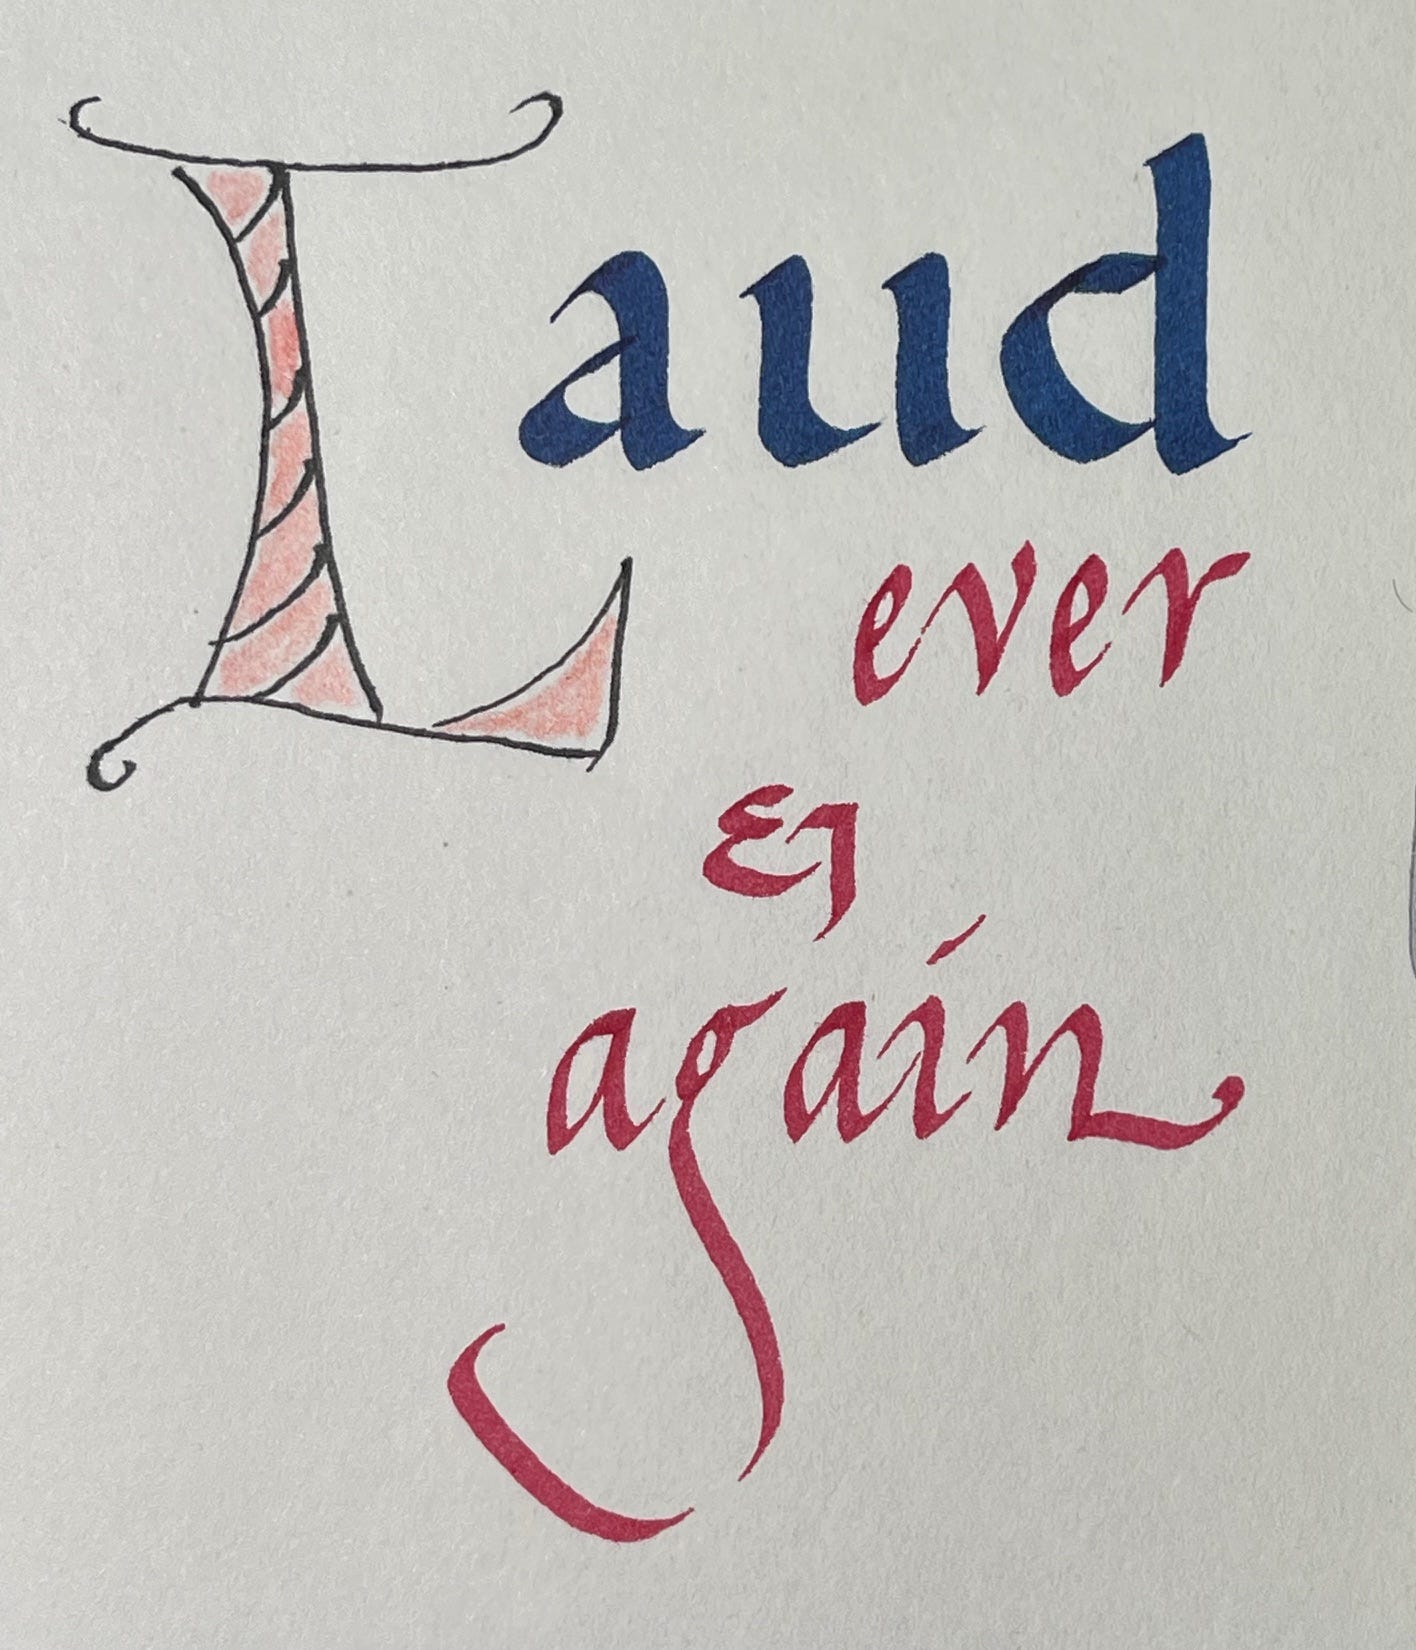 Laud
ever
&
again